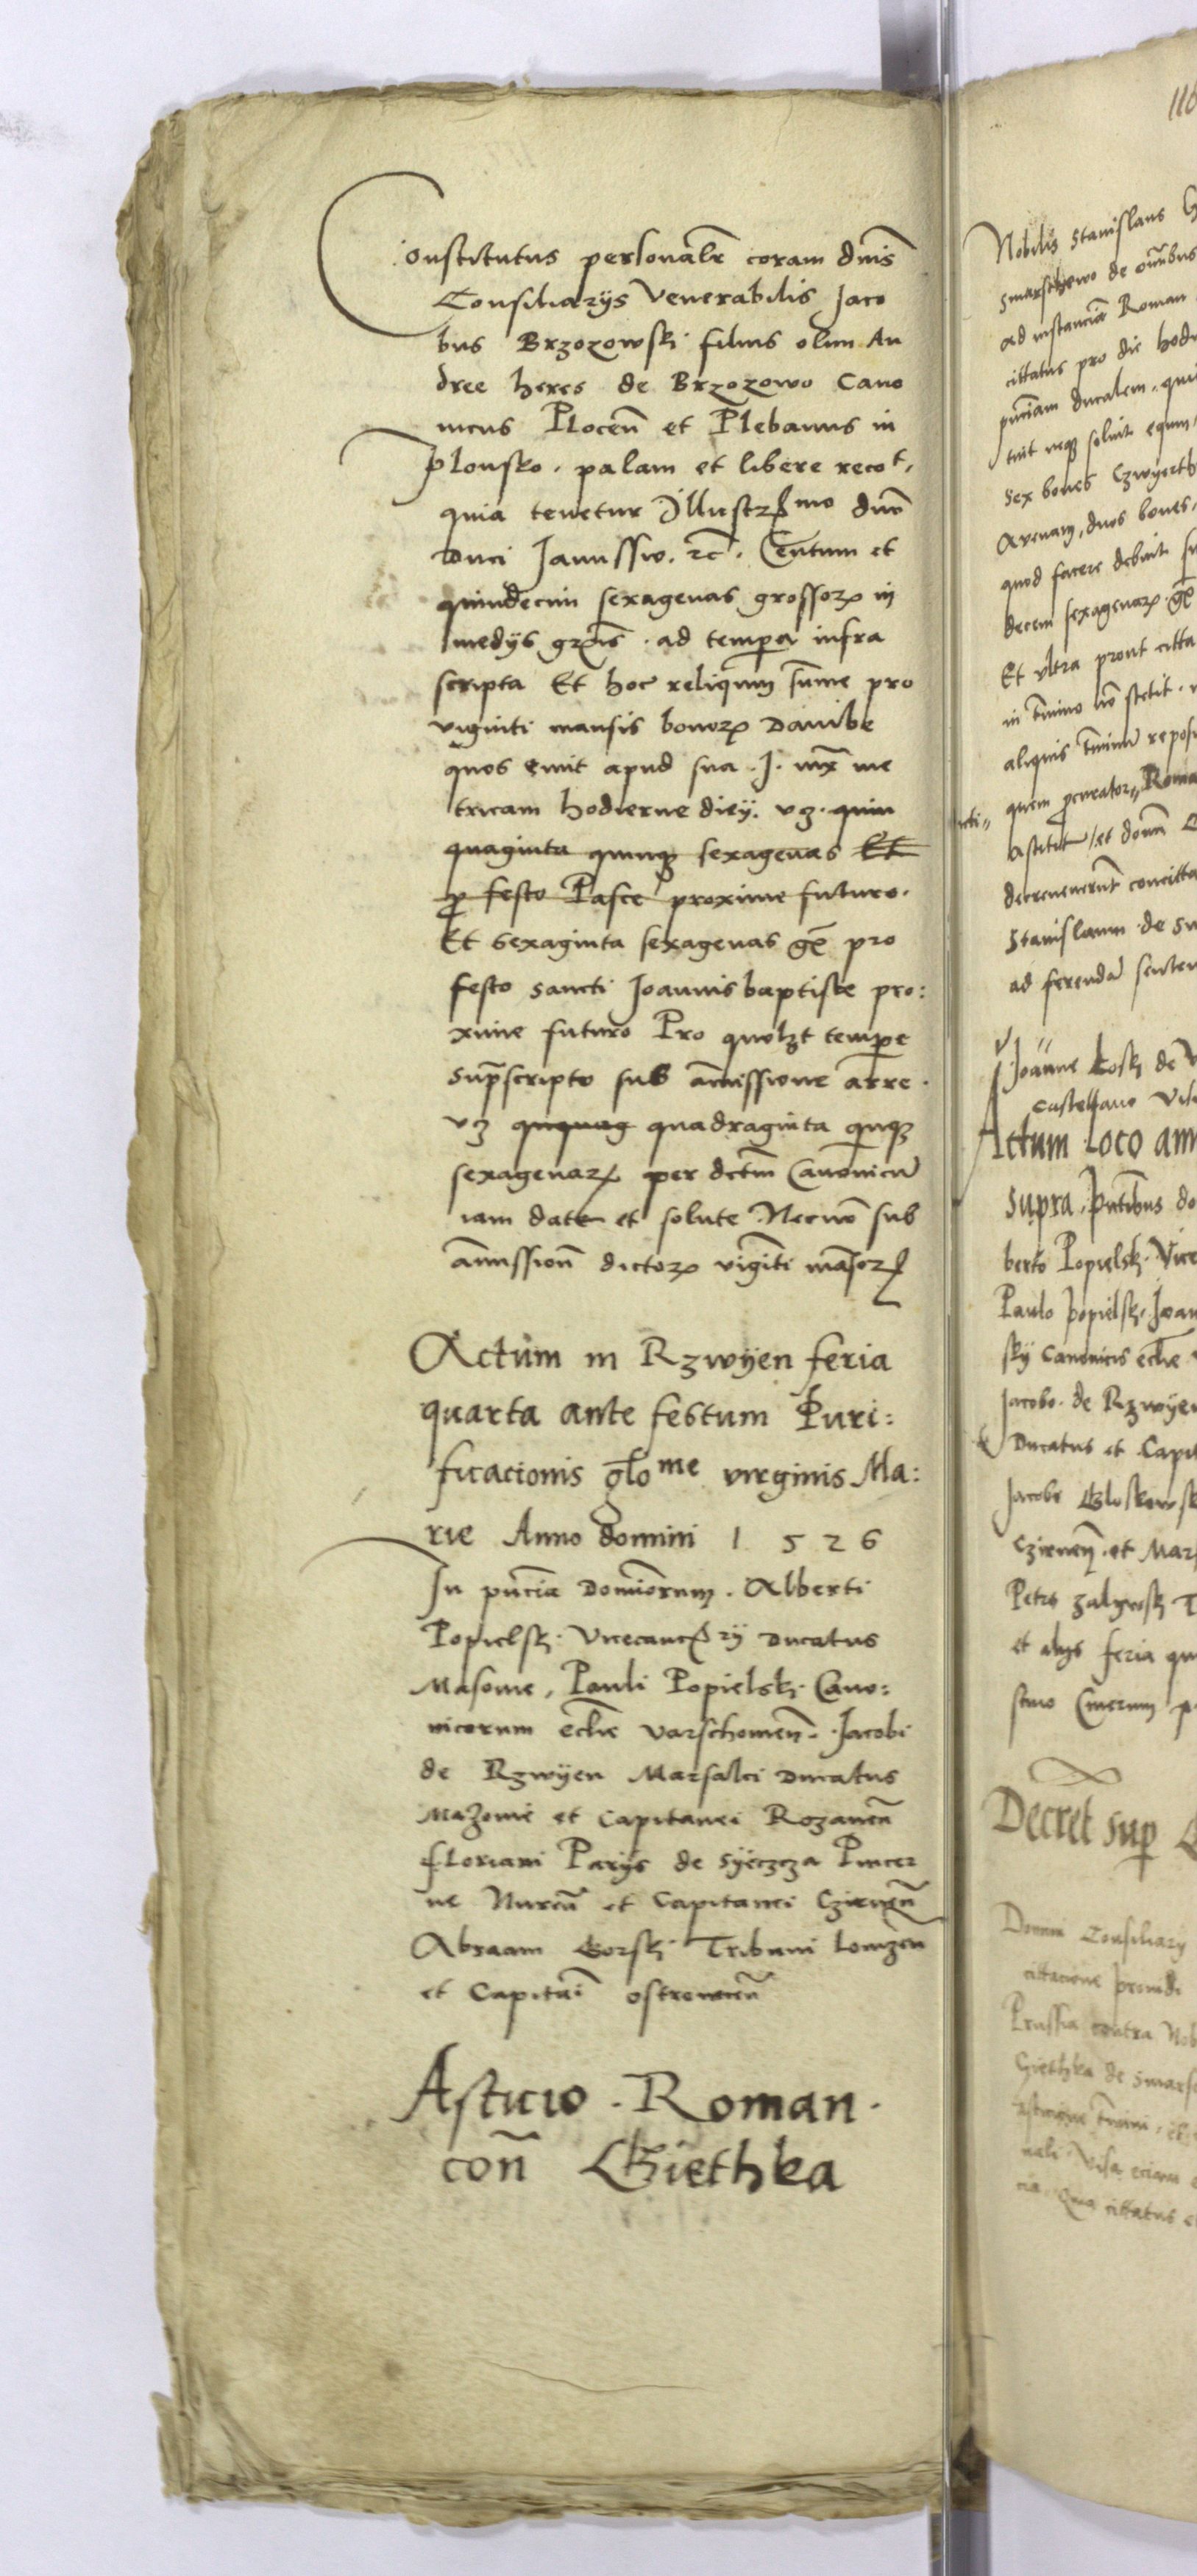 Constitutus personalr coram dnis
Consiliarijs Venerabilis Jaco
bus Brzozowski filius olim An
dree heres de Brzozowo Cano
nicus Plocen et Plebanus in
Plonsko . palam et libere recot .
quia tenetur Illustrmo dno
duci Janussio . rc . Centum et
quindecim sexagenas grossor in
medijs grıs . ad tempora infra
scripta Et hoc reliquum summe pro
viginti mansis bonor Danibe
quos emit apud sua . J . iux me
tricam hodierne diey . vz . quin
quaginta quinq sexagenas Et
p festo Pasce proxime futuro .
Et sexaginta sexagenas ge pro
festo sancti Joannis baptiste pro:
xime futuro Pro quolzt tempe
supscripto sub amissione arre .
vz ququag quadraginta quinq
sexagenar per dctm Canonicu
iam date et solute Necno sub
amission dictor viginti mansor
Actum in Rzwyen feria
quarta ante festum Puri:
ficacionis glome virginis Ma:
rie Anno domini 1 5 2 6
In pncia Dominorum . Alberti
Popielsk . Vicecancry Ducatus
Masovie , Pauli Popielski . Cano:
nicorum eclie varschovien . Jacobi
de Rzwyen Marsalci Ducatus
Mazovie et Capitanei Rozanen
Floriani Parys de Syeczcza Pincer
ne Nuren et Capitanei Czirnen
Abraam Gorski Tribuni Lomzen
et Capitai ostrowien
Asticio . Roman .
con Giethka
118
Nobilis Stanislaus
Smarschewo de omibus
ad instancia Roman
cittatus pro die hodi
pnciam ducalem . qui
tuit neq soluit equm ,
Sex boves Czwyerth
Avenam , duos boves ,
quod facere debuit
decem sexagenar . ge
Et ultra prout citta
in tmino no stetit .
aliquis tminu repos
quem procurator Roma
Astitit / et domi
decreverunt concitta
Stanislaum . de Sm
ad ferenda senten
Joanne Cosk de V
castellano Vis
Actum Loco ann
supra . Pntibus do
berto Popielsk . Vice
Paulo popielsk . Joan
sky Canonicis eclie
Jacobo . de Rzwyen
Ducatus et Capit
Jacobo Gloskowsk
Czirnen . et Mar
Petro Zalywsk T
et alys feria qu
Cinerum p
Decret sup
Domini Consiliary
cittacione providi
Prussia contra Nob
Giethka de Smars
Visa eciam
Qua cittatus